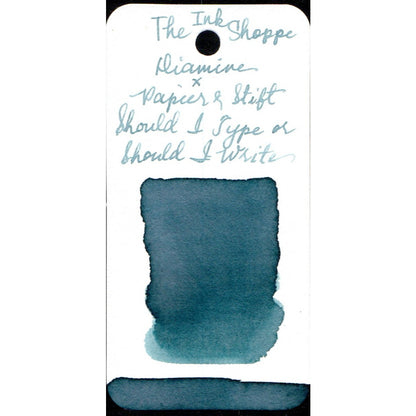 The Ink Shoppe
Diamine
x
Papier & Stift
Should I Type or
Should I Write